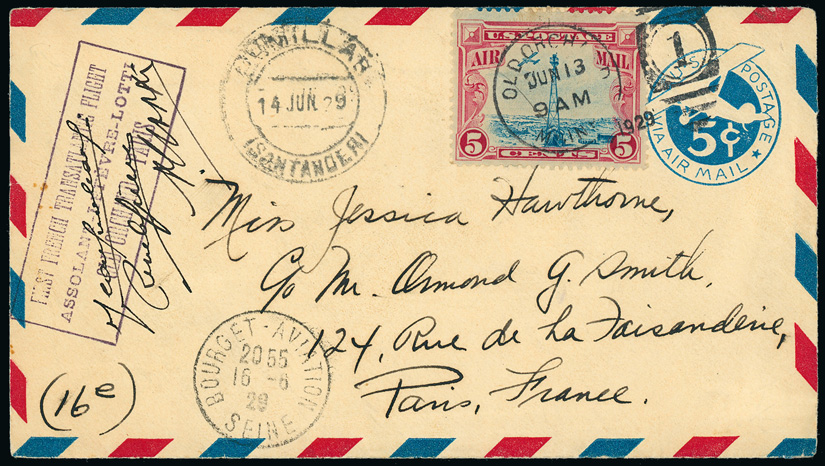 FIRST FRENCH TRANSATLANTIC FLIGHT
ASSOLANT-LEFEVRE-LOTTI
OLD ORCHARD-PARIS
COMILLAS
14 JUN 29
(SANTANDER)
U.S. POSTAGE
AIR MAIL
5 CENTS 5
OLD ORCHARD
JUN 13
9 AM
1929
MAINE
1
U.S. POSTAGE
5¢
VIA AIR MAIL
Miss Jessica Hawthorne,
c/o Mr. Ormond G. Smith,
124, Rue de La Faisanderie,
Paris, France.
(16e)
BOURGET-AVIATION
20 55
16 -6
29
SEINE